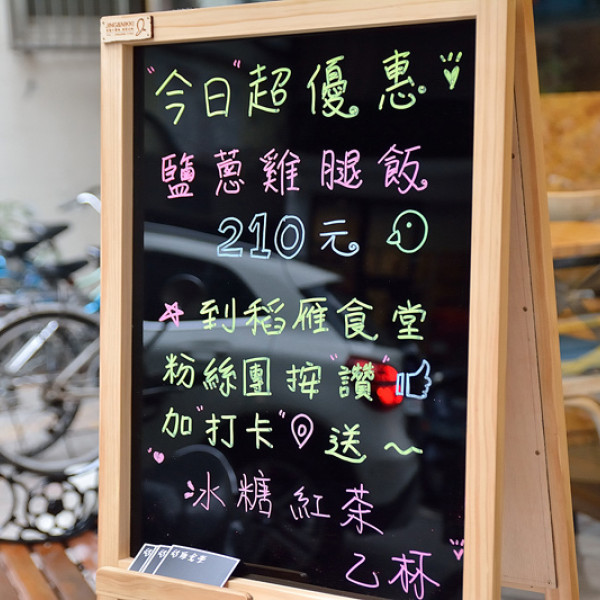 "今日"超優惠
鹽蔥雞腿飯
210元
到稻雁食堂
粉絲團按"讚"
加"打卡"送~
冰糖紅茶
乙杯